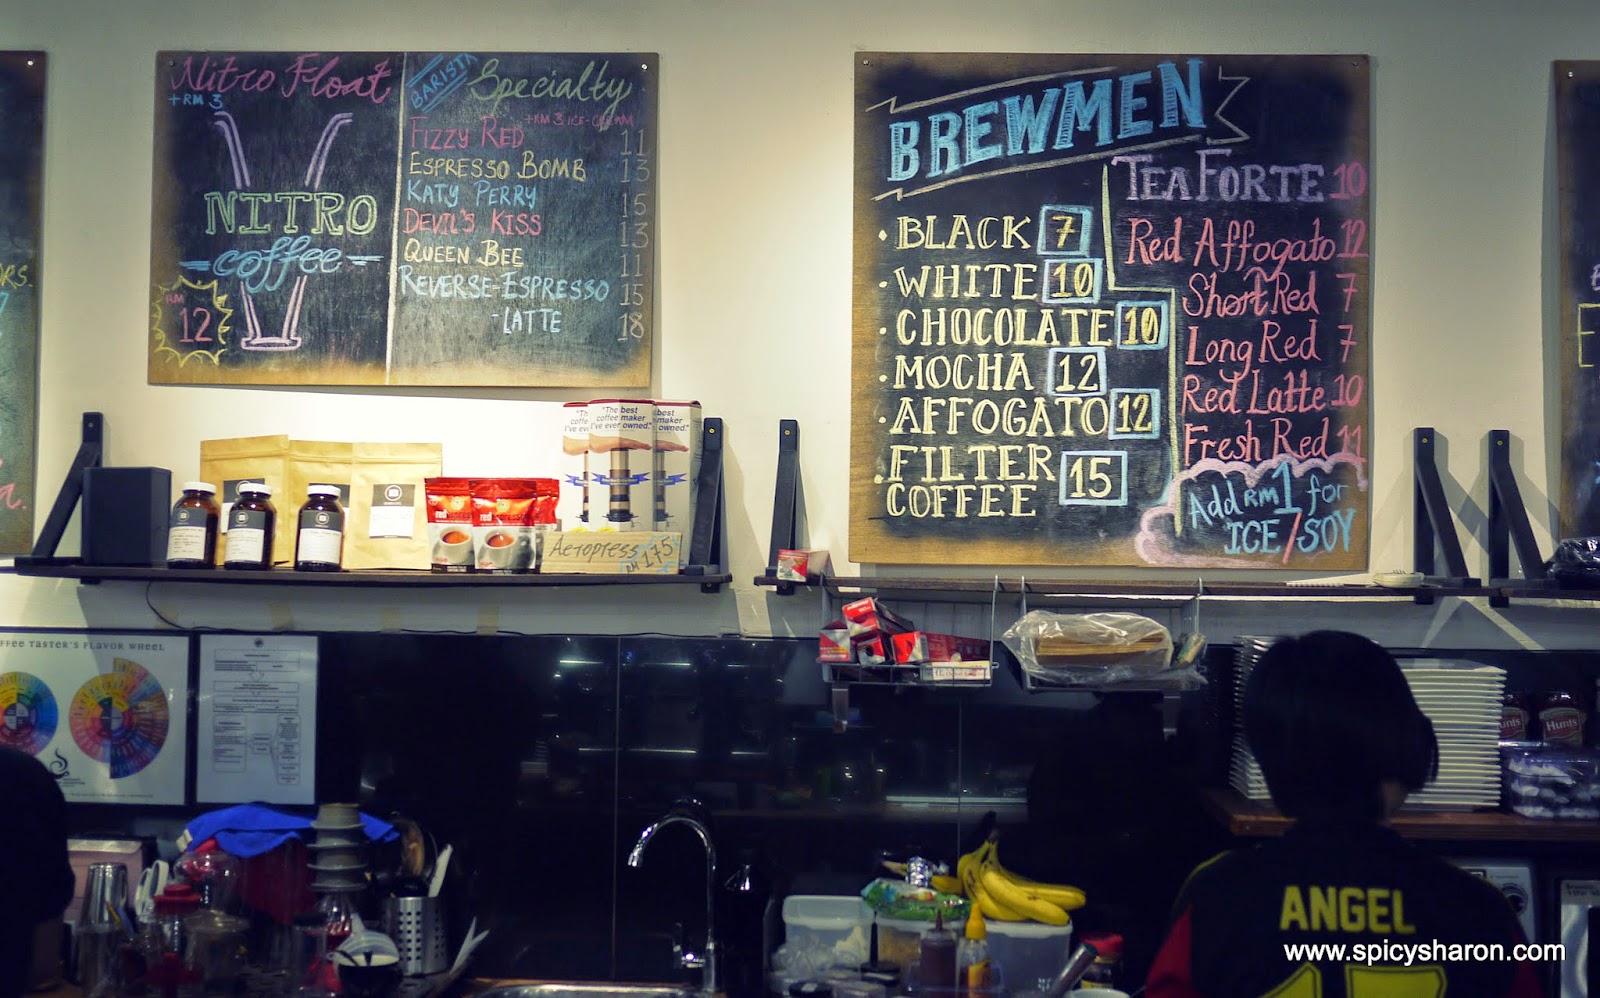 Nitro Float
+RM 3
NITRO
coffee
RM
12
BARISTA
Specialty
+RM 3 ICE-CREAM
FIZZY RED 11
ESPRESSO BOMB 13
KATY PERRY 15
DEVIL'S KISS 13
QUEEN BEE 11
REVERSE-ESPRESSO 15
-LATTE 18
BREWMEN
• BLACK 7
• WHITE 10
• CHOCOLATE 10
• MOCHA 12
• AFFOGATO 12
FILTER
COFFEE 15
TEA FORTE 10
Red Affogato 12
Short Red 7
Long Red 7
Red Latte 10
Fresh Red 11
Add RM 1 for
ICE/SOY
"The best
coffee maker
I've ever owned."
red
Aeropress
RM 175
TASTER'S FLAVOR WHEEL
Hunts
ANGEL
www.spicysharon.com